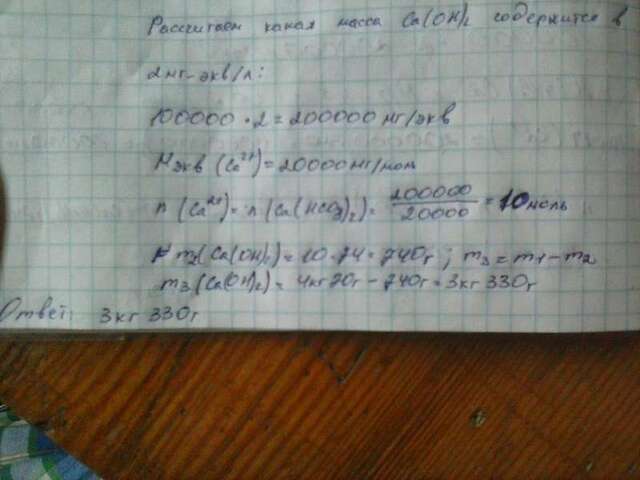 Рассчитаем какая масса Ca(OH)₂ содержится в
2мг-экв/л:
100000 · 2 = 200000 мг/экв
Mэкв (Ca²⁺) = 20000 мг/мол
n (Ca²⁺) = n (Ca(HCO₃)₂) = 200000/20000 = 10 моль
m₂(Ca(OH)₂) = 10 · 74 = 740г ; m₃ = m₁ - m₂
m₃ (Ca(OH)₂) = 4кг 70г - 740г = 3кг 330г
Ответ: 3кг 330г